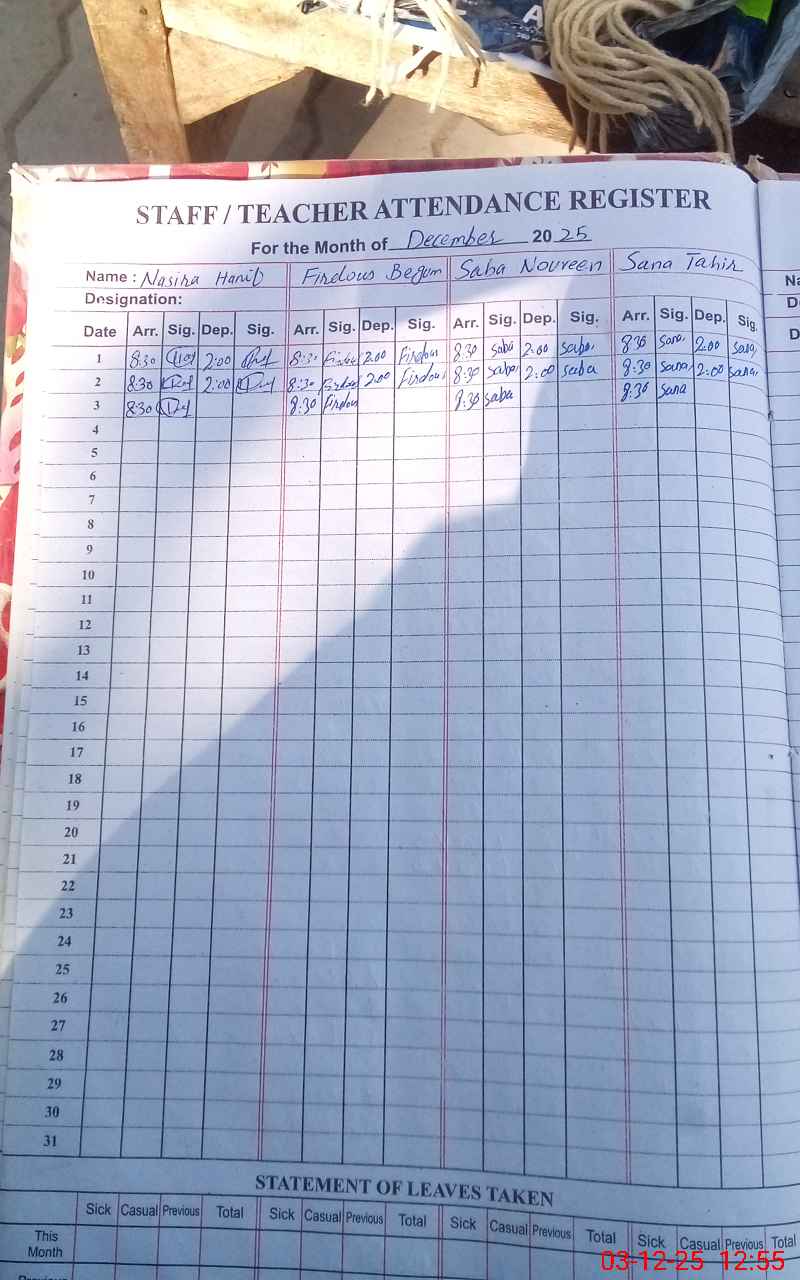 STAFF / TEACHER ATTENDANCE REGISTER
For the Month of December 2025
Name : Nasira Hanif Firdous Begum Saba Novreen Sana Tahir
Designation:
Date Arr. Sig. Dep. Sig. Arr. Sig. Dep. Sig. Arr. Sig. Dep. Sig. Arr. Sig. Dep. Sig.
1 8:30 2:00 8:30 2:00 Firdous 8:30 Saba 2:00 Saba 8:30 Sana 2:00 Sana
2 8:30 2:00 8:30 2:00 Firdous 8:30 Saba 2:00 Saba 8:30 Sana 2:00 Sana
3 8:30 8:30 Firdous 8:30 Saba 8:30 Sana
4
5
6
7
8
9
10
11
12
13
14
15
16
17
18
19
20
21
22
23
24
25
26
27
28
29
30
31
STATEMENT OF LEAVES TAKEN
Sick Casual Previous Total Sick Casual Previous Total Sick Casual Previous Total Sick Casual Previous Total
This Month
03-12-25 12:55